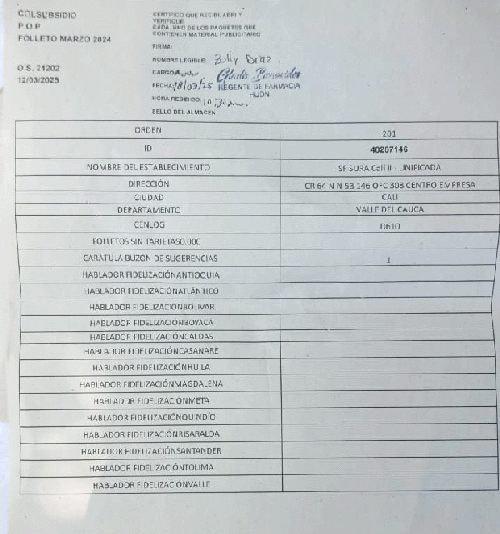 COLSUBSIDIO
P.O.P
FOLLETO MARZO 2024
O.S. 21202
12/03/2025
CERTIFICO QUE RECIBI, ABRI Y
VERIFIQUE
CADA UNO DE LOS PAQUETES QUE
CONTIENEN MATERIAL PUBLICITARIO
FIRMA:
NOMBRE LEGIBLE: Diaz
CARGO
FECHA
REGENTE DE FARMACIA
HORA RECIBIDO:
SELLO DEL ALMACEN
ORDEN 201
ID 40207146
NOMBRE DEL ESTABLECIMIENTO UNIFICADA
DIRECCIÓN CR 64 N N 5B 146 OFC 303 CENTRO EMPRESA
CIUDAD CALI
DEPARTAMENTO VALLE DEL CAUCA
CENLOG
FOLLETOS SIN TARIETAS0.00C
CARATULA BUZON DE SUGERENCIAS 1
HABLADOR FIDELIZACIÓN ANTIOQUIA
HABLADOR FIDELIZACIÓN ATLÁNTICO
HABLADOR FIDELIZACIÓN BOLIVAR
HABLADOR FIDELIZACIÓN BOYACA
HABLADOR FIDELIZACIÓN CALDAS
HABLADOR FIDELIZACIÓN CASANARE
HABLADOR FIDELIZACIÓN HUILA
HABLADOR FIDELIZACIÓN MAGDALENA
HABLADOR FIDELIZACION META
HABLADOR FIDELIZACIÓN QUINDIO
HABLADOR FIDELIZACIÓN RISARALDA
HABLADOR FIDELIZACIÓN SANTANDER
HABLADOR FIDELIZACIÓN TOLIMA
HABLADOR FIDELIZACION VALLE